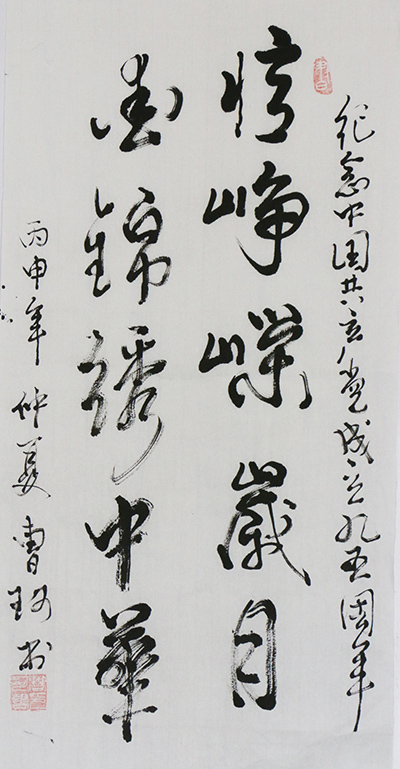 纪念中国共产党成立九五周年
憶峥嵘歲月
錦綉中華
丙申年仲夏曹书